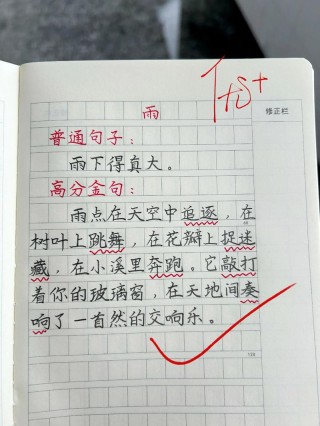 雨
修正栏
普通句子：
雨下得真大。
高分金句：
雨点在天空中追逐，在
树叶上跳舞，在花瓣上捉迷
藏，在小溪里奔跑。它敲打
着你的玻璃窗，在天地间奏
响了一首然的交响乐。